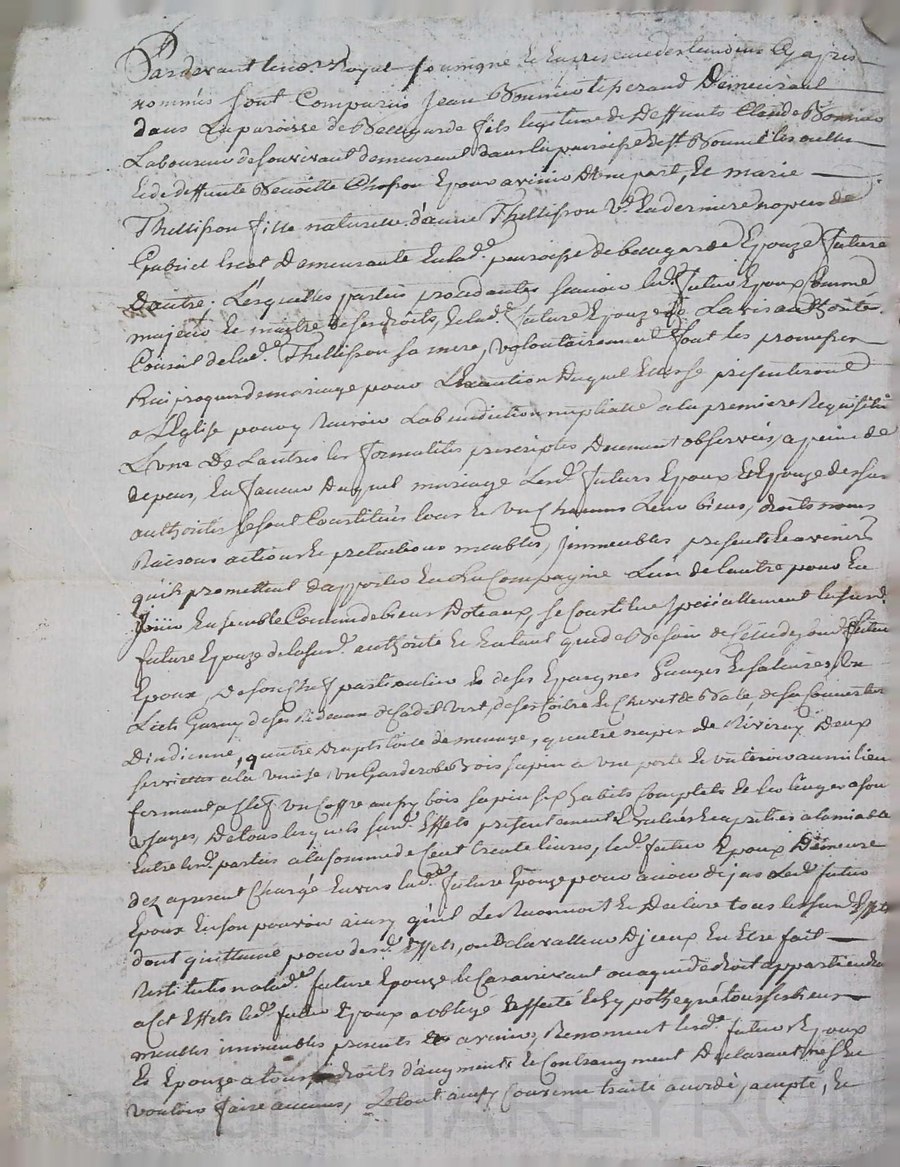 Pardevant le no.re Royal soussigné et en presence des temoins cy apres
nommés sont comparus Jean Bonnier tisserand Demeurant
dans la paroisse de Beauregarde fils legitime de Deffunts Claude Bonnier
Laboureur de son vivant demeurant dans la paroisse de St Bonnet les oulles
et de deffunte Benoitte Epoux avenir D'une part, et marie
Thellisson fille naturelle d'anne Thellisson v.e en dernieres nopces de
Gabriel Demeurante en lad.e paroisse de beauregarde Epouze future
D'autre. Lesquelles parties procedantes sçavoir led. futur Epoux comme
majeur et maitre de ses droits, et lad.e future Epouze de L'avis authorité
Conseil de lad.e Thellisson sa mere, volontairement font les promesses
Reciproques de mariage pour L'Exécution Duquel Elles se presenteront
a L'Eglise pour y Recevoir La benediction nuptialle a la premiere Requisition
L'une De L'autre les formalités prescriptes Deument observées, a peine de
depens, En faveur Duquel mariage Lesd. futurs Epoux Et Epouze de sus
authorités se sont Constitués tous et un Chacuns Leurs biens, droits noms
Raisons actions et pretentions meubles, immeubles presents et avenirs
qu'ils promettent d'apporter En La Compagnie L'un de l'autre pour En
jouir Ensemble Comme de biens Doteaux, se constitue specialement la sus d.
future Epouze de la sus d. authorité et En tant que de Besoin de celle dud. futur
Epoux, De son Chef particulier et de ses Epargnes Gauges et salaires, Un
Lict Garny de ses Rideaux de Cadil vert, de ses Coitre et Chevet de Bale, de sa Couverture
D'indienne, quatre Draps toile de menage, quatre napes de Deux
serviettes a la venise, un Garderobe Bois sapin a une porte et un tiroir au milieu
fermant a Clef un Coffre aussy bois sapin six habits complets et les linges a son
usages, De tous lesquels sus d. Effets presentement Evalués et apretiés a l'amiable
Entre lesd. parties a la somme de Cent trente livres, led. futur Epoux Demeure
dez apresent Chargé Envers lad.e future Epouze pour avoir deja Led. futur
Epoux En son pouvoir ainsy qu'il Le Reconnoit et Declare tous les sus d. Effets
dont quittance pour desd. Effets, ou De la valleur D'iceux En Etre fait
Restitution a lad.e future Epouze le Cas arrivant ou a qui de droit appartiendra
a Cet Effets led. futur Epoux a obligé affecté et hypothequé tous ses biens
meubles immeubles presents et avenir, Renoncent lesd. futur Epoux
Et Epouze a tous droits d'augments et Contraugment Declarant n'En
vouloir faire aucuns, Le tout ainsy Convenu traité accordé, accepté, Et
Pascal CHAREYRON